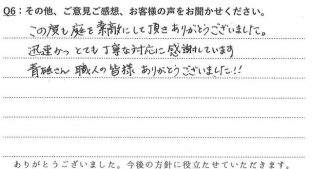 Q6：その他、ご意見ご感想、お客様の声をお聞かせください。
この度も庭を素敵にして頂きありがとうございました。
迅速かつとても丁寧な対応に感謝しています
青砥さん 職人の皆様 ありがとうございました!!
ありがとうございました。今後の方針に役立たせていただきます。